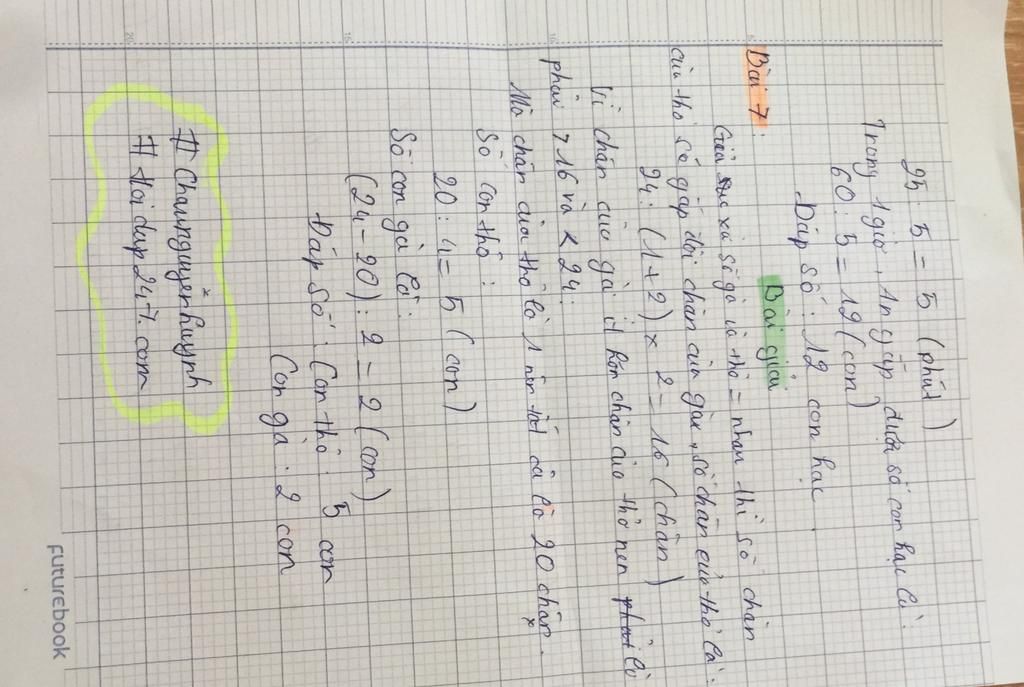 25 5 = 5 (phút)
Trong 1 giờ, An gấp được số con hạc là:
60 : 5 = 12 (con)
Đáp số: 12 con hạc.
Bài giải
Bài 7:
Giả sử xử số gà và thỏ = nhau thì số chân
của thỏ sẽ gấp đôi chân của gà, số chân của thỏ là:
24 : (1+2) x 2 = 16 (chân)
Vì chân của gà ít hơn chân của thỏ nên phải là
phải > 16 và < 24:
Mà chân của thỏ là 1 nên tất cả là 20 chân.
Số con thỏ:
20 : 4 = 5 (con)
Số con gà là:
(24 - 20) : 2 = 2 (con)
Đáp số: Con thỏ: 5 con
Con gà: 2 con
# Chaunguyễnhuỳnh
# Hoi dap 247.com
futurebook